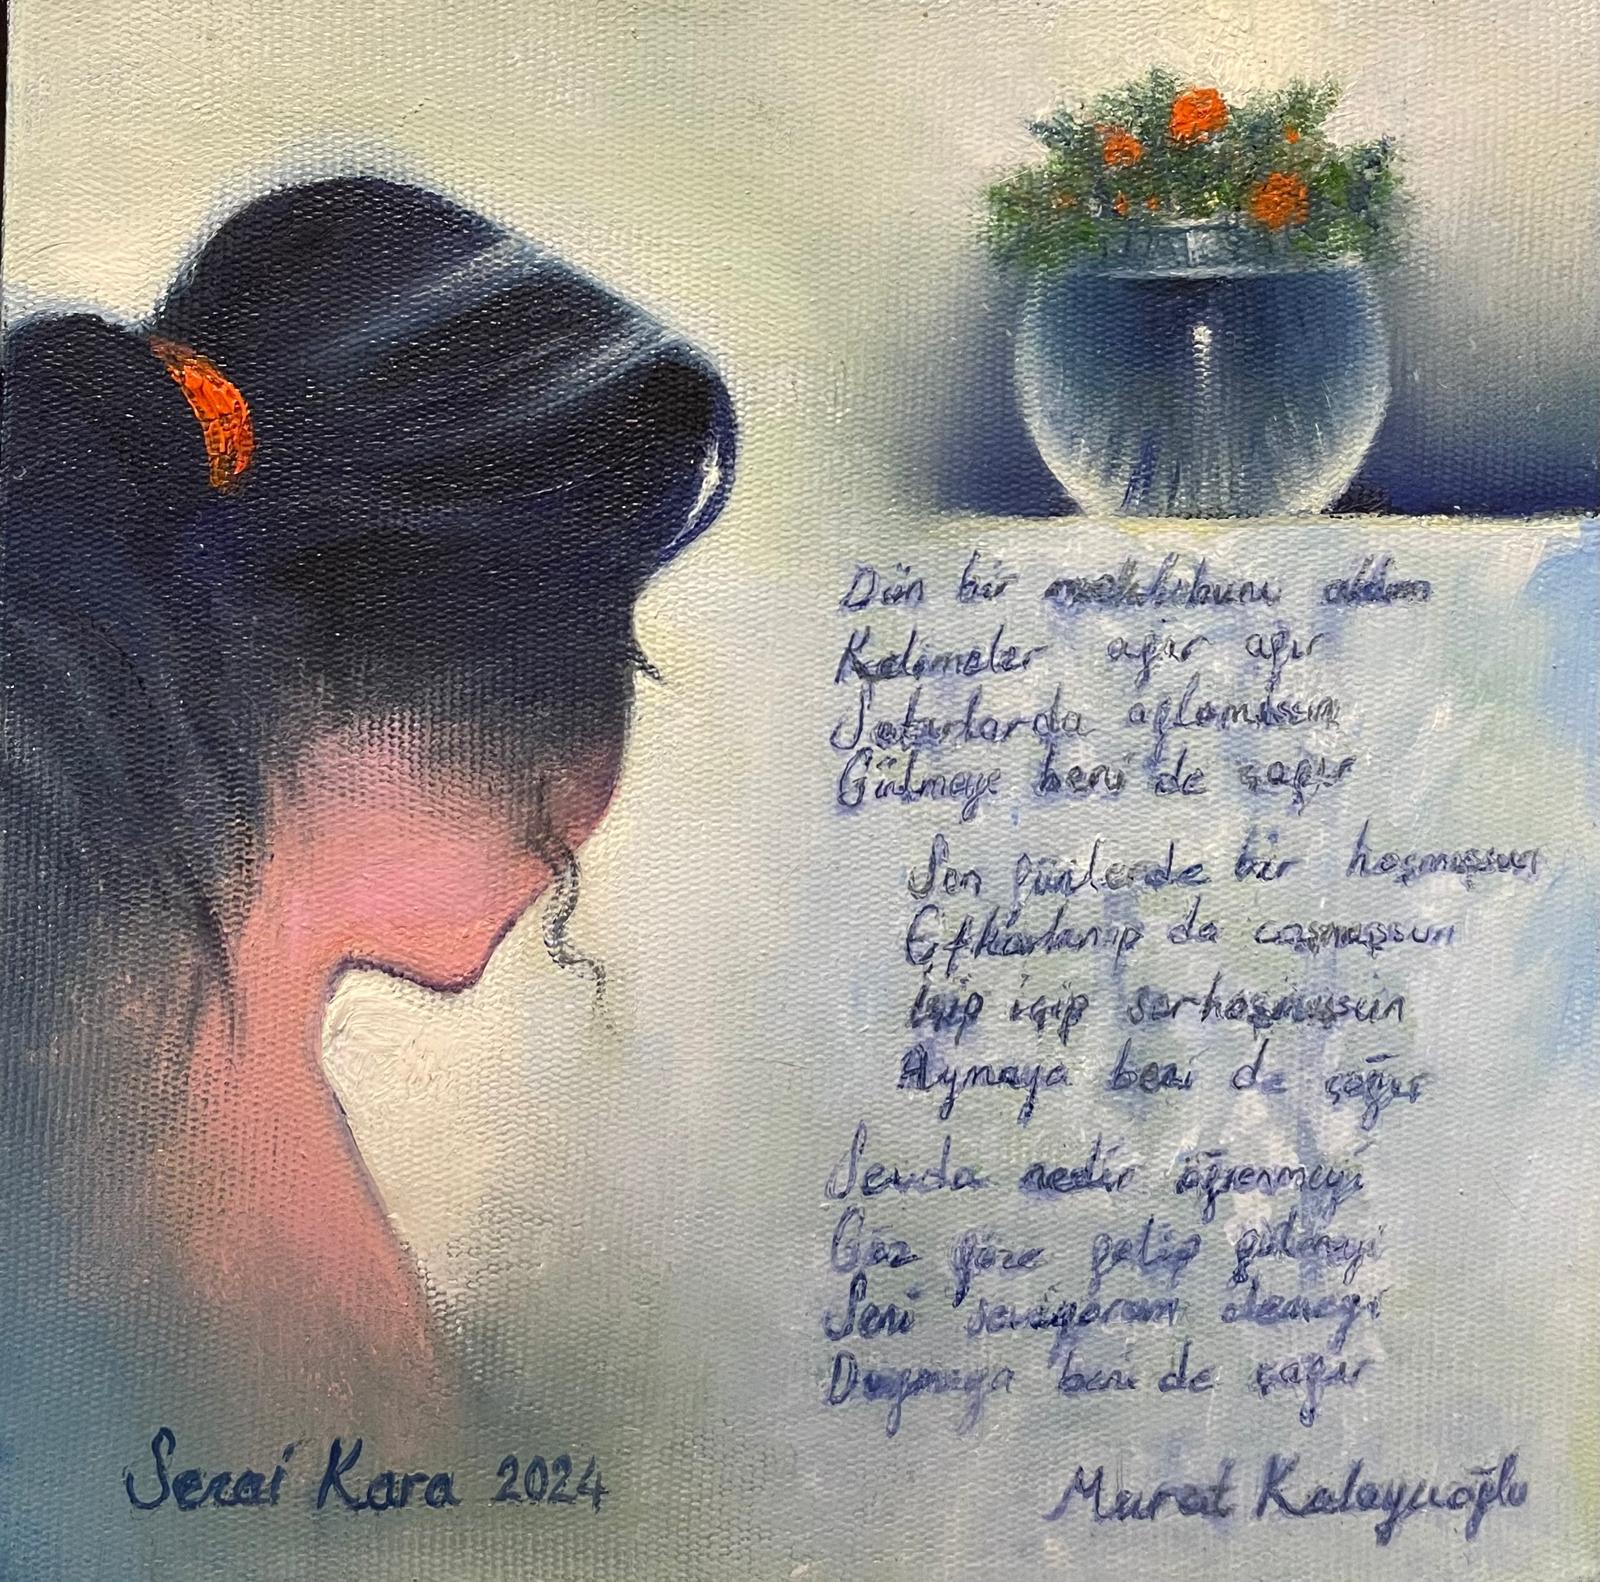 Dün bir mektubunu aldım
Kelimeler ağır ağır
Satırlarda ağlamışsın
Gülmeye beni de çağır
Son günlerde bir hoşmuşsun
Efkarlanıp da coşmuşsun
İçip içip sarhoşmuşsun
Aynaya beni de çağır
Sevda nedir öğrenmeyi
Göz göze gelip gülmeyi
Seni seviyorum demeyi
Duymaya beni de çağır
Sezai Kara 2024
Murat Kalaycıoğlu